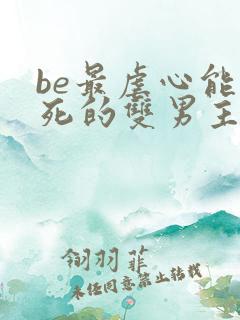 be最虐心能
死的雙男主
翎羽菲
未任同意禁止转载